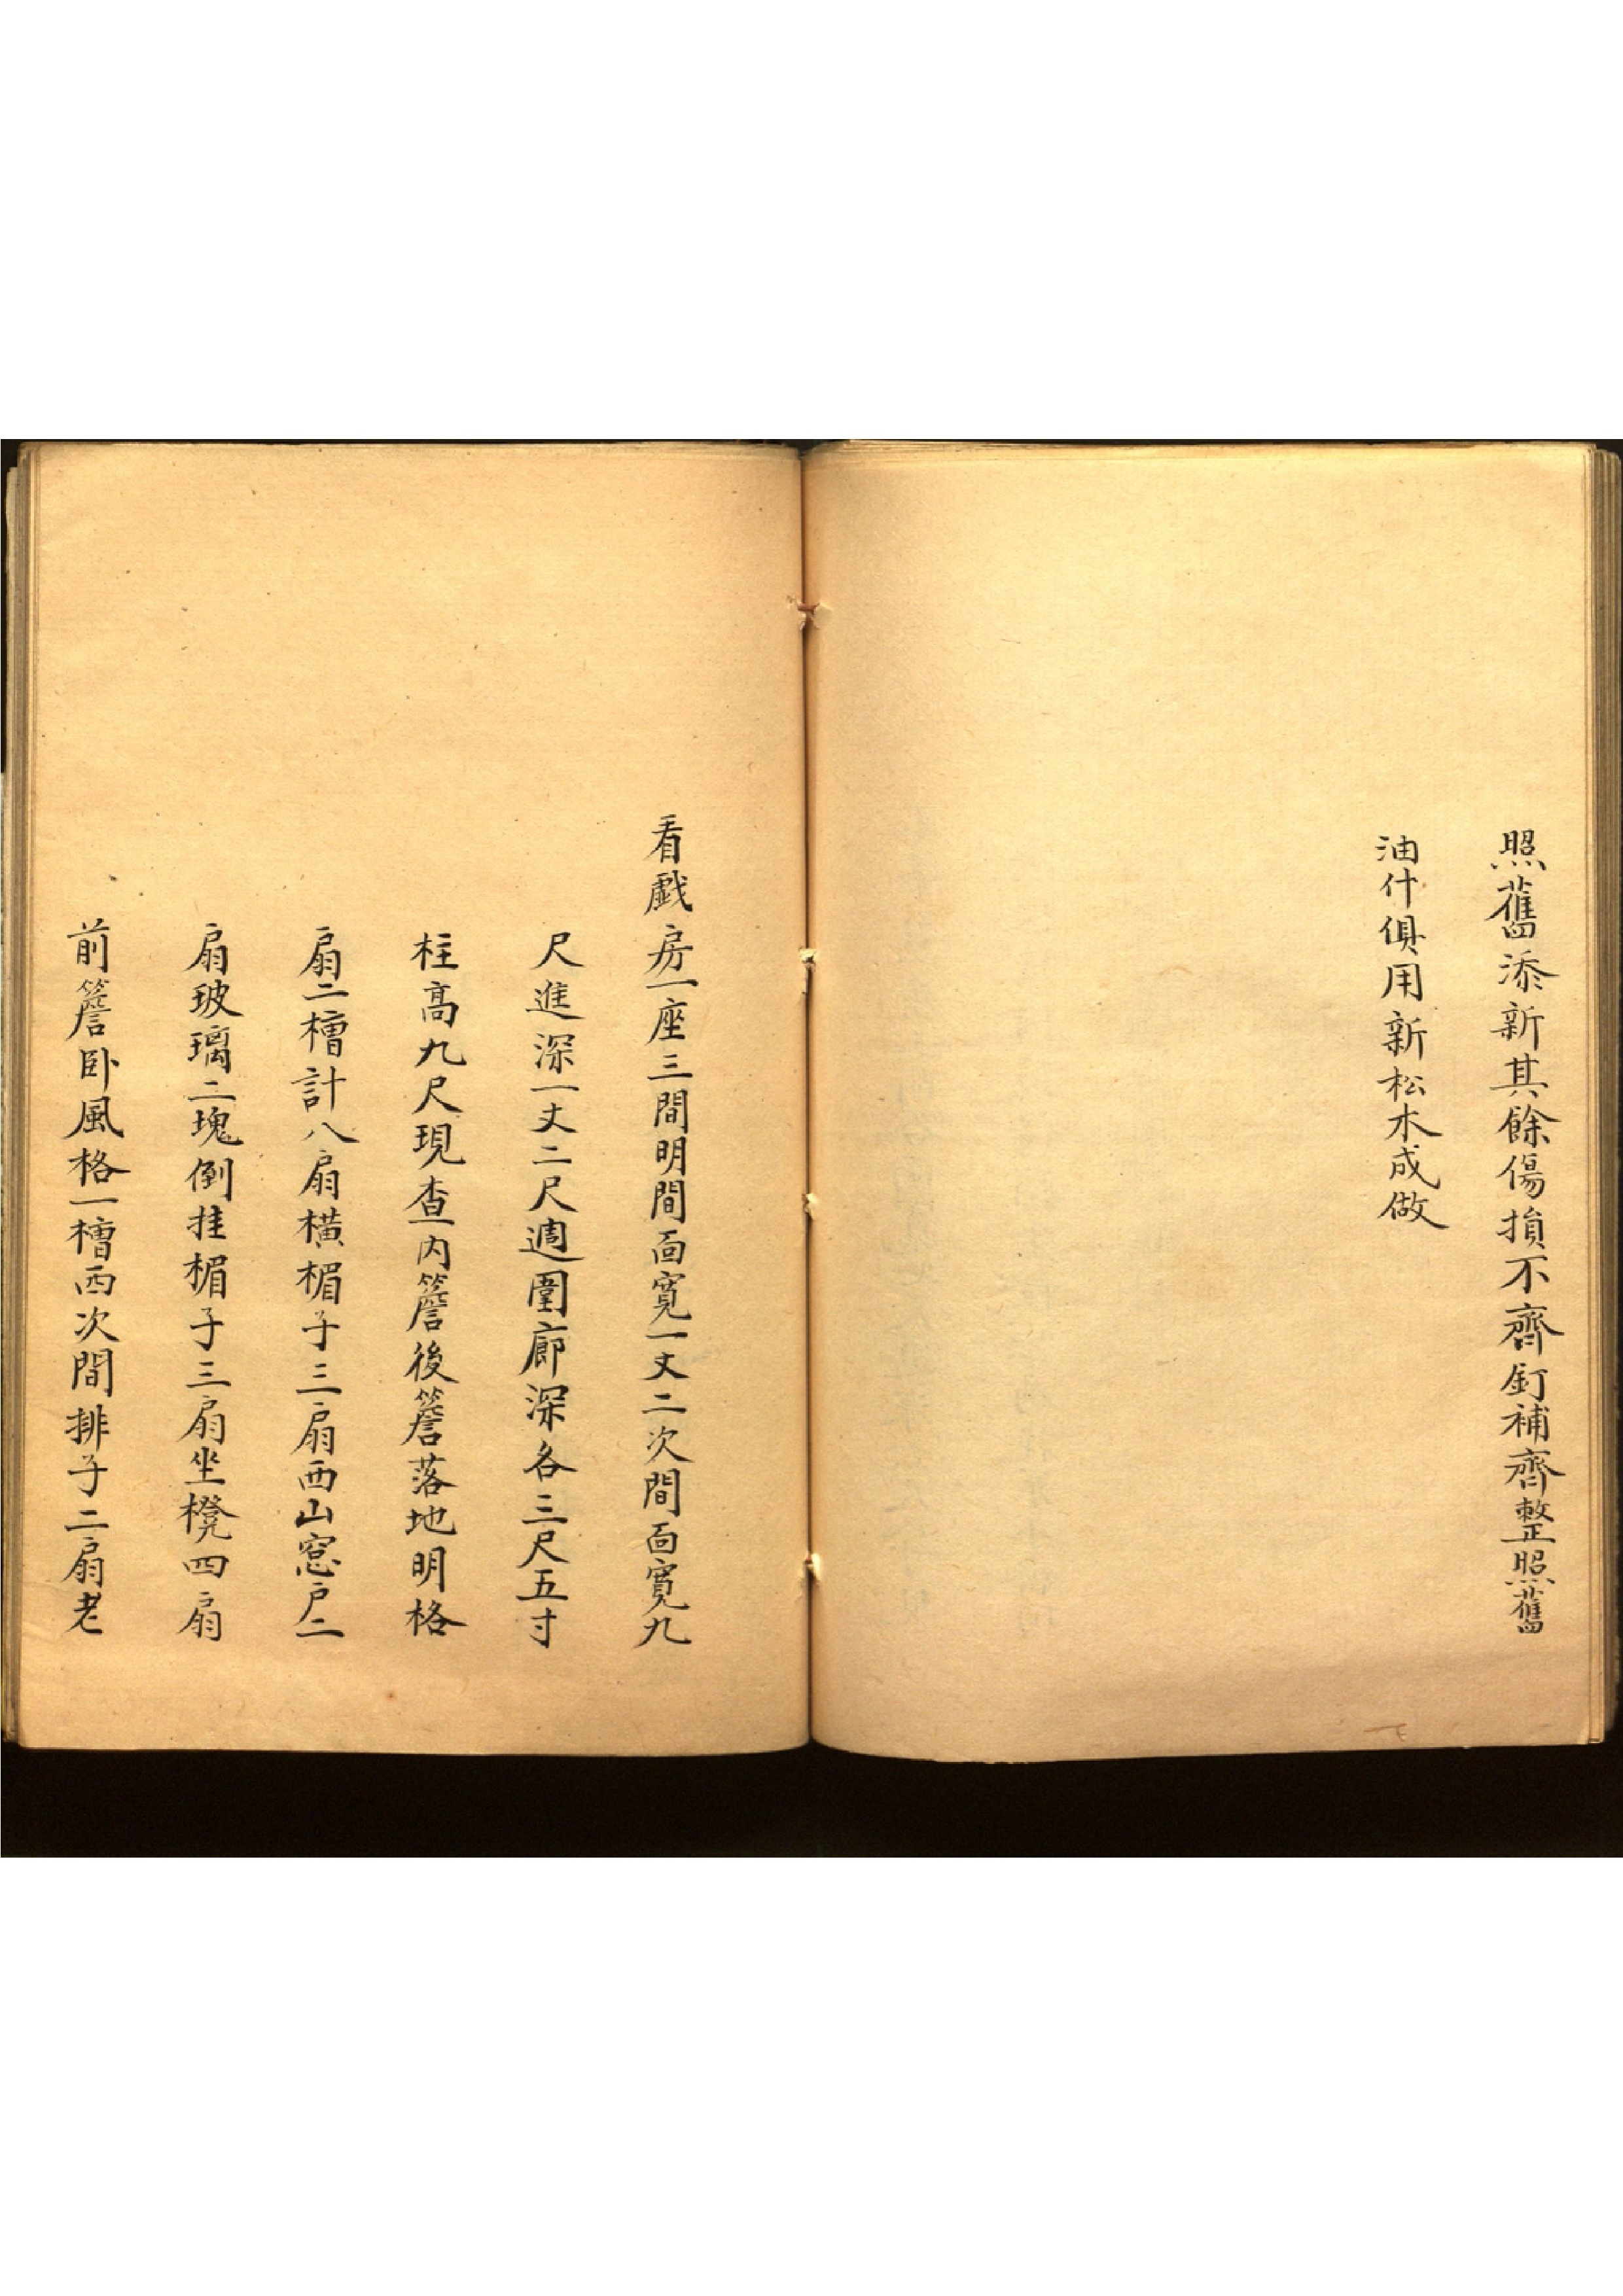 照舊添新其餘傷損不齊釘補齊整照舊
油什俱用新松木成做
看戲房一座三間明間面寬一丈二次間面寬九
尺進深一丈二尺週圍廊深各三尺五寸
柱高九尺現查內簷後簷落地明格
扇二槽計八扇橫楣子三扇西山窓戶二
扇玻璃二塊倒挂楣子三扇坐櫈四扇
前簷卧風格一槽西次間排子二扇老